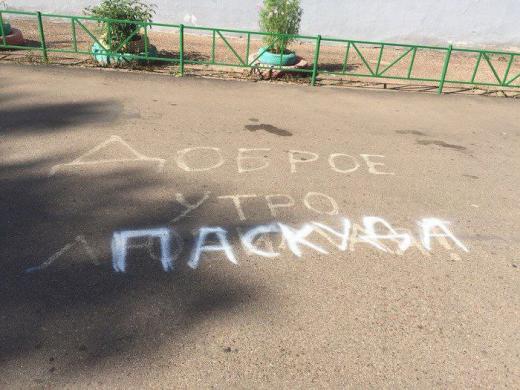 ДОБРОЕ
УТРО
ПАСКУДА